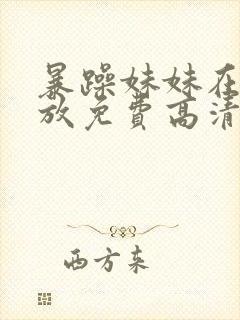 暴躁妹妹在
放免费高清
西方来